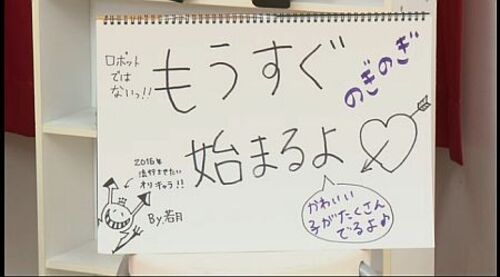 ロボット
では
ないっ!!
もうすぐ
のぎのぎ
始まるよ
2016年
流行させたい
オリキャラ!!
By.若月
かわいい
子がたくさん
でるよ♪